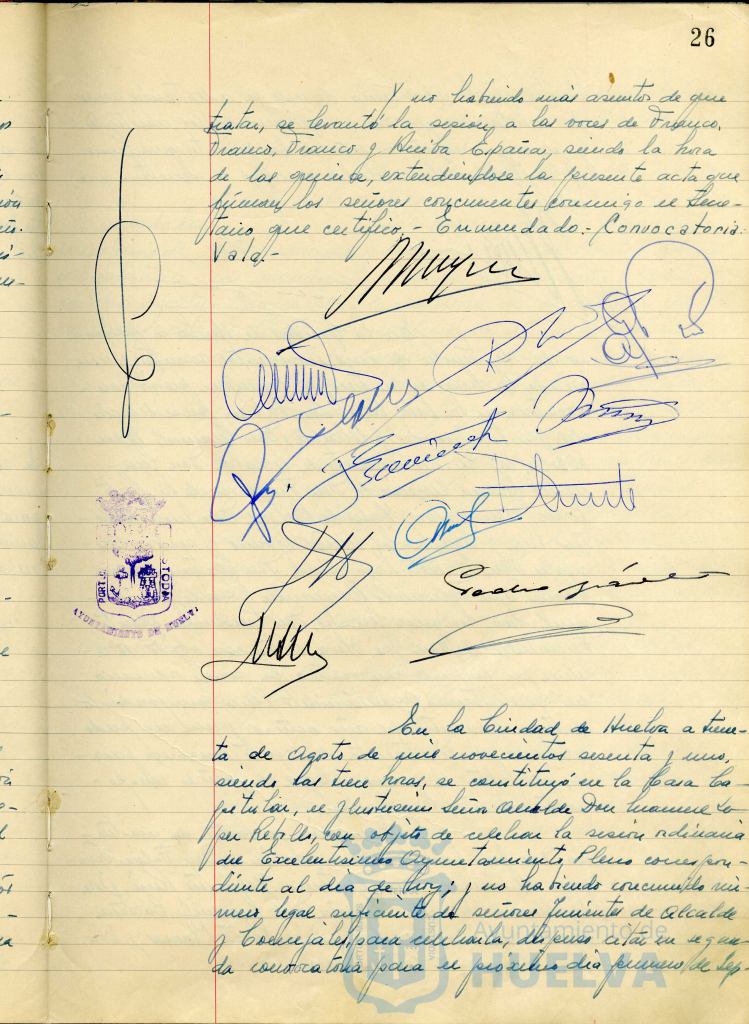 26
Y no habiendo más asuntos de que
tratar, se levantó la sesión, a las voces de Franco,
Franco, Franco y Arriba España, siendo la hora
de las quince, extendiéndose la presente acta que
firman los señores concurrentes conmigo el Secre-
tario que certifico.- Enmendado.- Convocatoria.
Vale.-
PORT
CUSTODIA
AYUNTAMIENTO DE HUELVA
En la Ciudad de Huelva a trein-
ta de Agosto de mil novecientos sesenta y uno,
siendo las trece horas, se constituyó en la Casa Ca-
pitular, el Ilustrísimo Señor Alcalde Don Manuel Ló-
pez Rebollo, con objeto de celebrar la sesión ordinaria
del Excelentísimo Ayuntamiento Pleno correspon-
diente al día de hoy; y no habiendo concurrido nú-
mero legal suficiente de señores Tenientes de Alcalde
y Concejales para celebrarla, dispuso citar en segun-
da convocatoria para el próximo día primero de Sep-
Ayuntamiento de
HUELVA